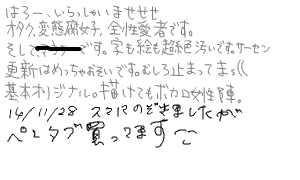 はろー、いらっしゃいませせせ
オタク、変態腐女子、全性愛者です。
そして、です。字も絵も超絶汚いです。サーセン
更新はめっちゃおそいです。むしろ止まってまっ((
基本オリジナル。描けてもボカロ女性陣。
14/11/28 スマホのぞきましたが
ペンタブ買ってます